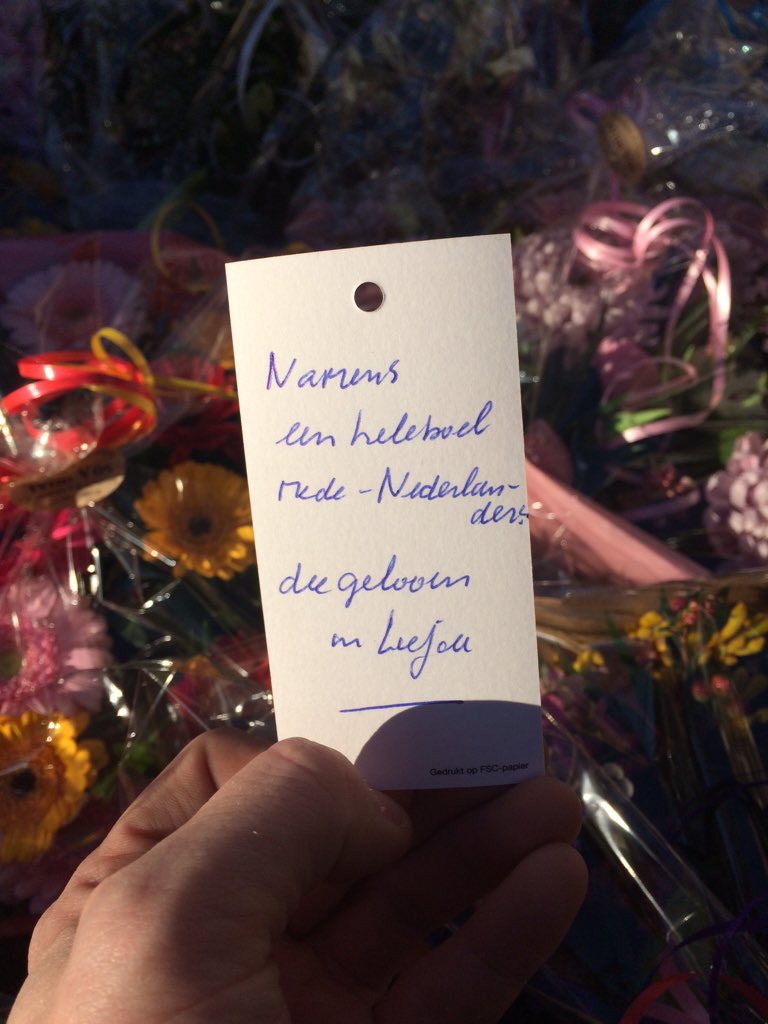 Namens
een heleboel
mede-Nederlan-
ders
die geloven
in
Gedrukt op FSC-papier